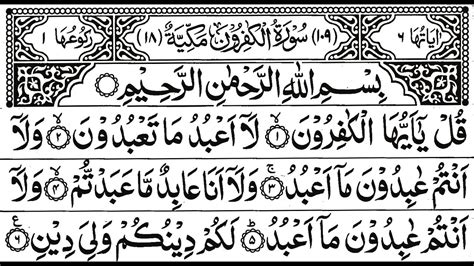 اٰیَاتُهَا ٦ (١٠٩) سُوْرَةُ الْكٰفِرُوْنَ مَكِّیَّةٌ (١٨) رُكُوْعُهَا ١
بِسْمِ اللّٰهِ الرَّحْمٰنِ الرَّحِیْمِ
قُلْ یٰۤاَیُّهَا الْكٰفِرُوْنَ ۙ﴿١﴾ لَاۤ اَعْبُدُ مَا تَعْبُدُوْنَ ۙ﴿٢﴾ وَلَاۤ
اَنْتُمْ عٰبِدُوْنَ مَاۤ اَعْبُدُ ۚ﴿٣﴾ وَلَاۤ اَنَا عَابِدٌ مَّا عَبَدْتُّمْ ۙ﴿٤﴾ وَلَاۤ
اَنْتُمْ عٰبِدُوْنَ مَاۤ اَعْبُدُ ؕ﴿٥﴾ لَكُمْ دِیْنُكُمْ وَلِیَ دِیْنِ ﴿٦﴾